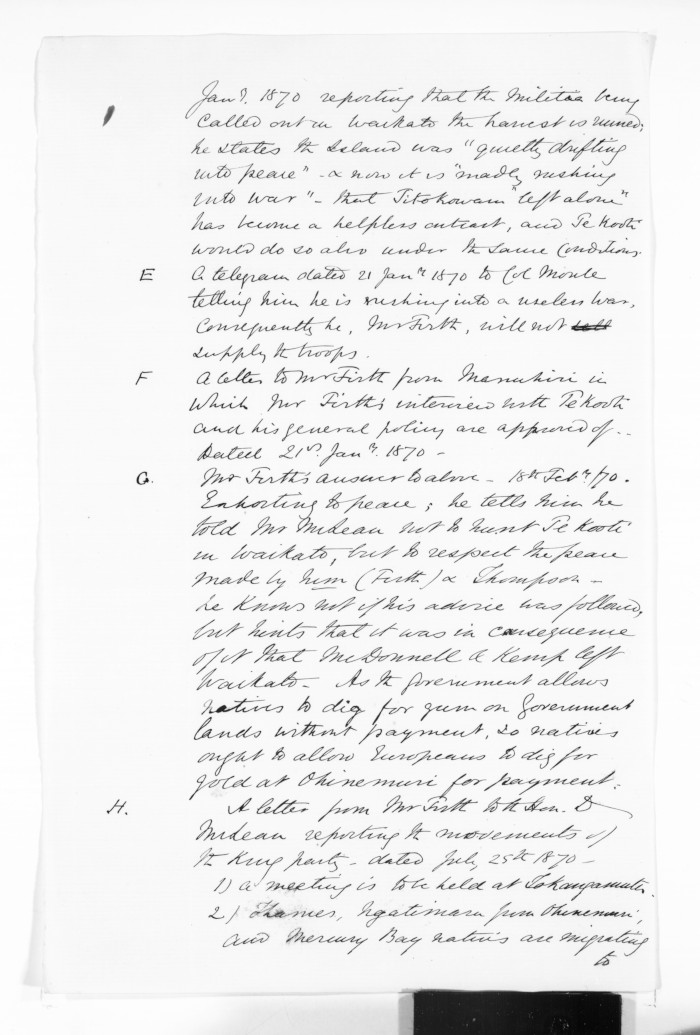 Jany. 1870 reporting that the Militia being
called out in Waikato the harvest is ruined,
he states the Island was "quietly drifting
into peace" - & now it is "madly rushing
into war" - that Titokowaru "left alone"
has become a helpless outcast, and Te Kooti
would do so also under the same conditions.
E A telegram dated 21 Jany 1870 to Col Moule
telling him he is rushing into a useless war,
Consequently he, Mr Firth, will not
supply the troops.
F A letter to Mr Firth from Manuhiri in
which Mr Firth's interview with Te Kooti
and his general policy are approved of -
Dated 21st Jany. 1870 -
G. Mr Firth's answer to above - 18th Feby /70.
Exhorting to peace; he tells him he
told Mr McLean not to hunt Te Kooti
in Waikato, but to respect the peace
made by him (Firth) & Thompson -
he knows not if his advice was followed,
but hints that it was in consequence
of it that McDonnell & Kemp left
Waikato - As the government allows
natives to dig for gum on Government
lands without payment, so natives
ought to allow Europeans to dig for
gold at Ohinemuri for payment.
H. A letter from Mr Firth to the Hon. D
McLean reporting the movements of
the King party - dated July 25th 1870 -
1) a meeting is to be held at Tokangamutu.
2) Thames, Ngatimaru from Ohinemuri,
and Mercury Bay natives are migrating
to